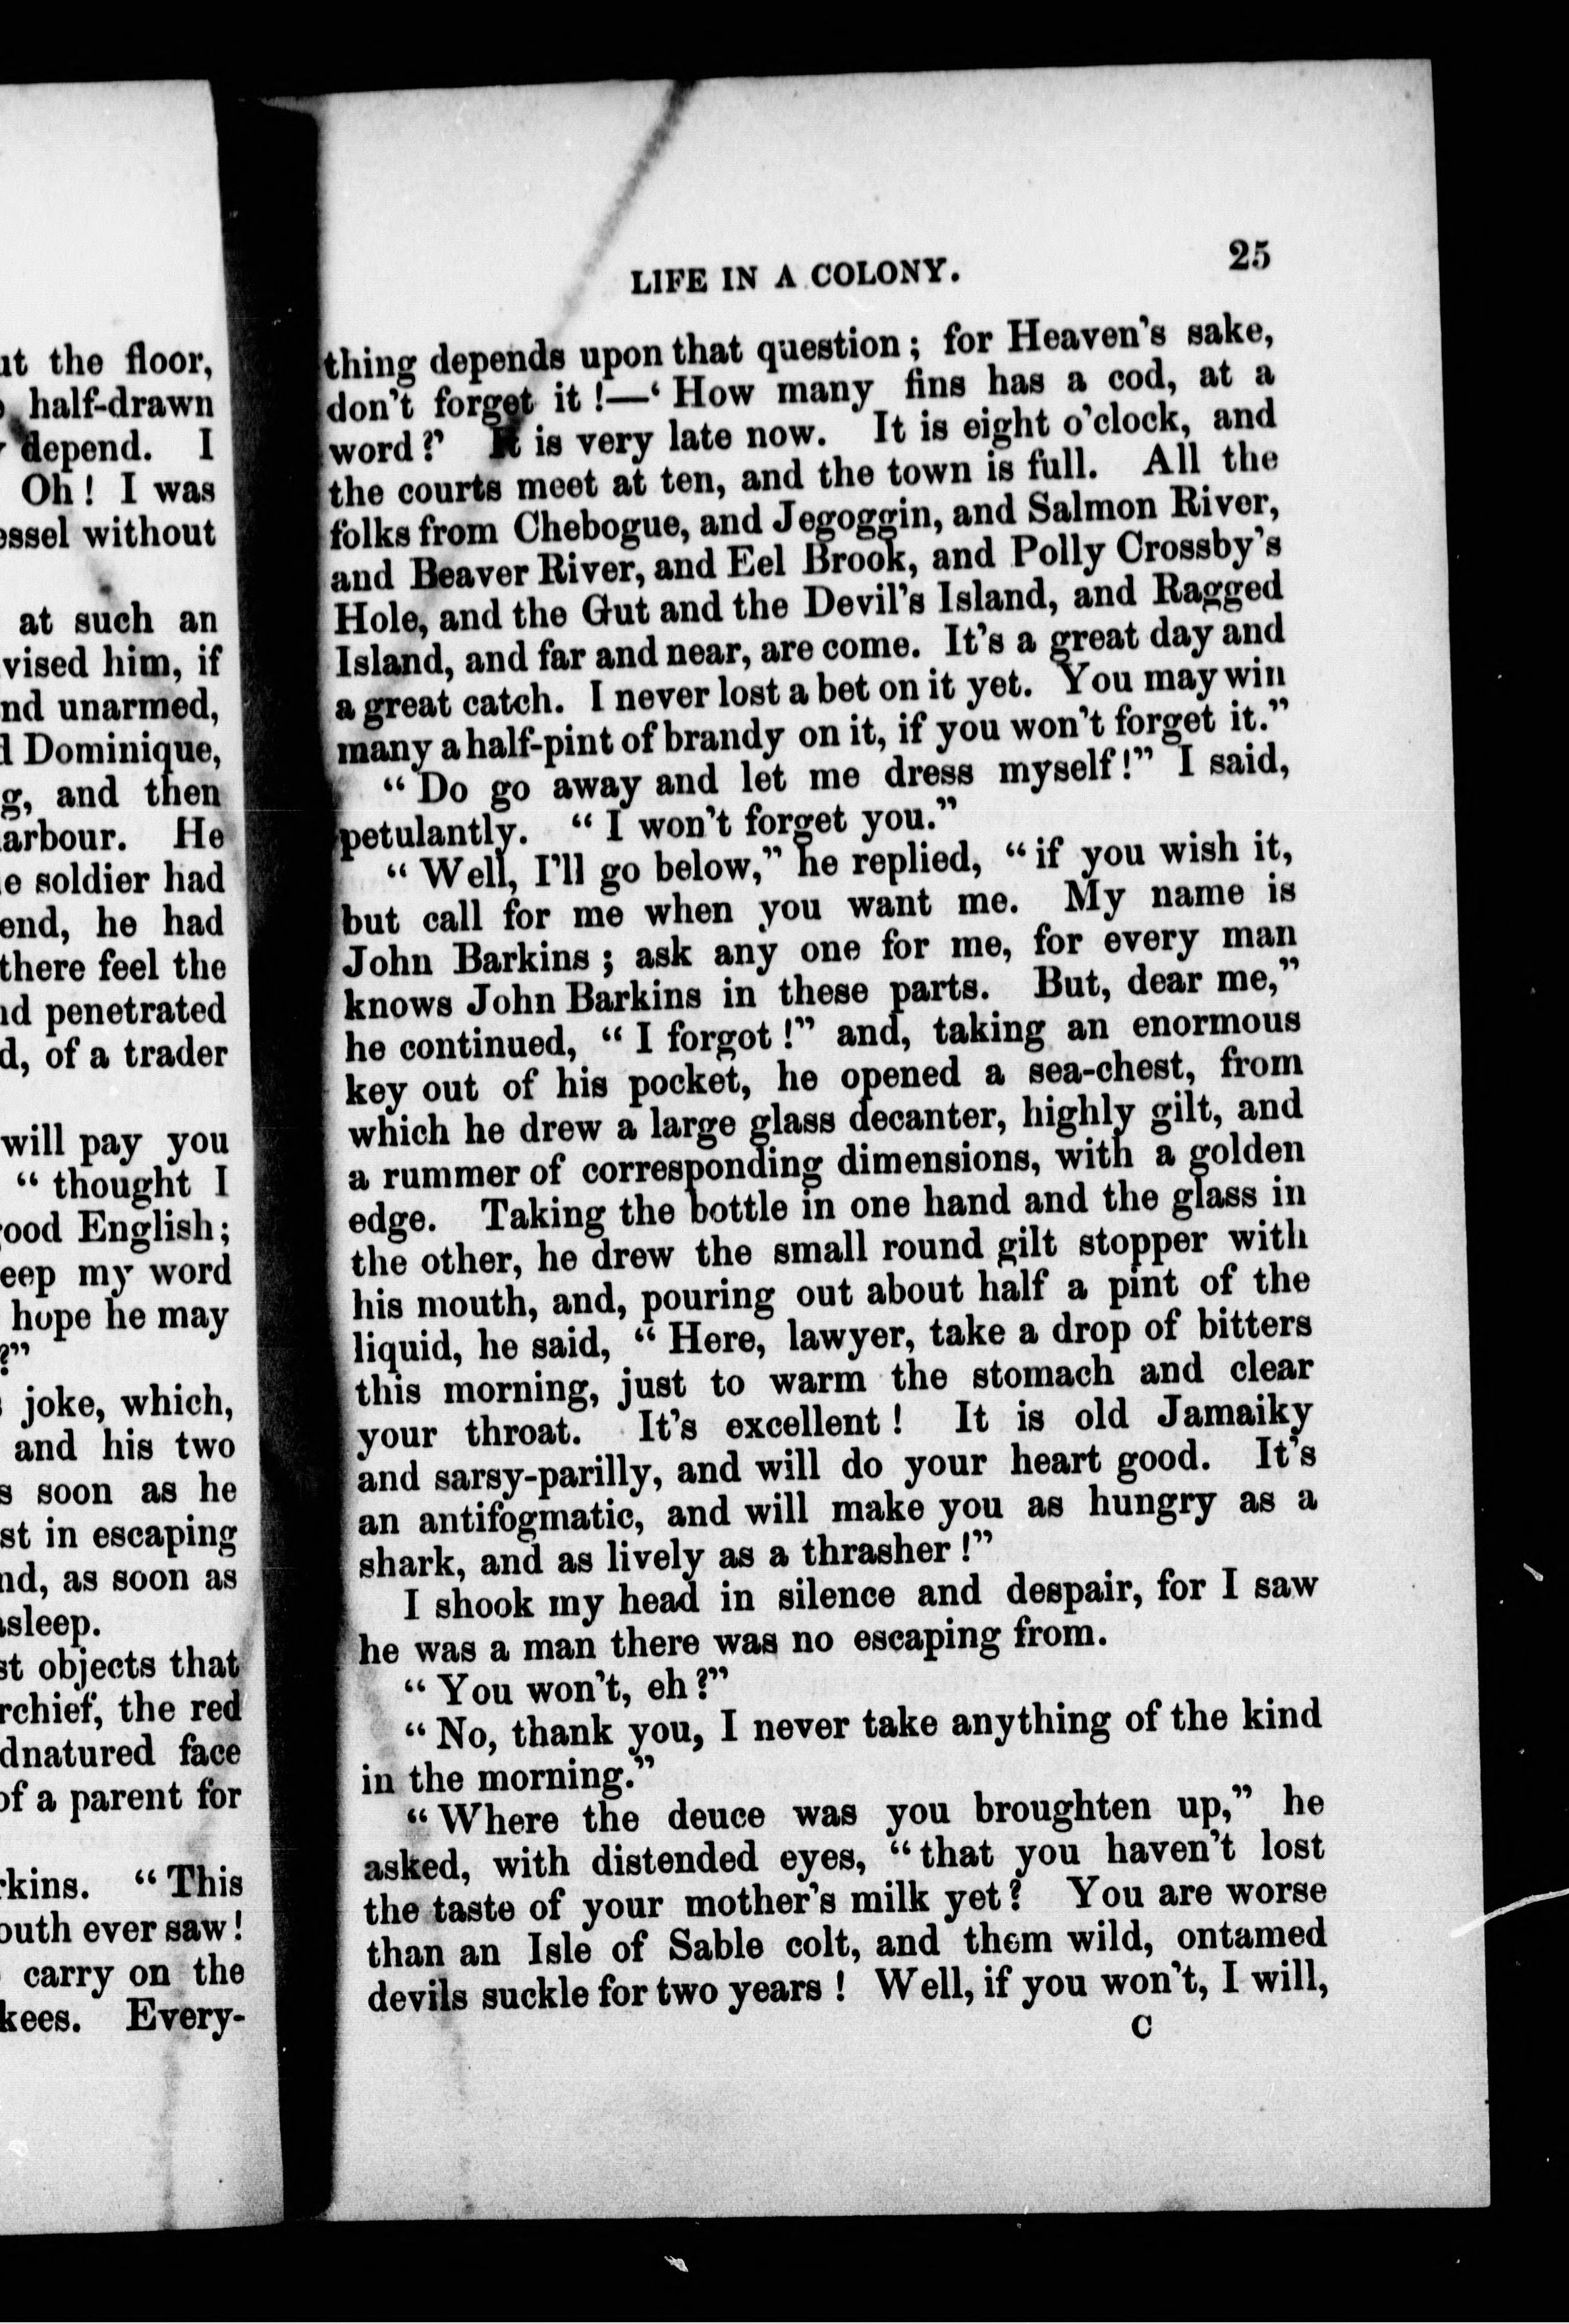 ut the floor,
half-drawn
depend. I
Oh! I was
essel without
at such an
vised him, if
nd unarmed,
d Dominique,
g, and then
arbour. He
e soldier had
end, he had
there feel the
nd penetrated
d, of a trader
will pay you
“ thought I
ood English;
eep my word
hope he may
?”
joke, which,
and his two
s soon as he
st in escaping
nd, as soon as
asleep.
st objects that
rchief, the red
dnatured face
of a parent for
rkins. “ This
outh ever saw!
carry on the
kees. Every-
LIFE IN A COLONY. 25
thing depends upon that question; for Heaven’s sake,
don’t forget it!—‘ How many fins has a cod, at a
word?’ It is very late now. It is eight o’clock, and
the courts meet at ten, and the town is full. All the
folks from Chebogue, and Jegoggin, and Salmon River,
and Beaver River, and Eel Brook, and Polly Crossby’s
Hole, and the Gut and the Devil’s Island, and Ragged
Island, and far and near, are come. It’s a great day and
a great catch. I never lost a bet on it yet. You may win
many a half-pint of brandy on it, if you won’t forget it.”
“ Do go away and let me dress myself!” I said,
petulantly. “ I won’t forget you.”
“ Well, I’ll go below,” he replied, “ if you wish it,
but call for me when you want me. My name is
John Barkins; ask any one for me, for every man
knows John Barkins in these parts. But, dear me,”
he continued, “ I forgot!” and, taking an enormous
key out of his pocket, he opened a sea-chest, from
which he drew a large glass decanter, highly gilt, and
a rummer of corresponding dimensions, with a golden
edge. Taking the bottle in one hand and the glass in
the other, he drew the small round gilt stopper with
his mouth, and, pouring out about half a pint of the
liquid, he said, “ Here, lawyer, take a drop of bitters
this morning, just to warm the stomach and clear
your throat. It’s excellent! It is old Jamaiky
and sarsy-parilly, and will do your heart good. It’s
an antifogmatic, and will make you as hungry as a
shark, and as lively as a thrasher!”
I shook my head in silence and despair, for I saw
he was a man there was no escaping from.
“ You won’t, eh?”
“ No, thank you, I never take anything of the kind
in the morning.”
“ Where the deuce was you broughten up,” he
asked, with distended eyes, “ that you haven’t lost
the taste of your mother’s milk yet? You are worse
than an Isle of Sable colt, and them wild, ontamed
devils suckle for two years! Well, if you won’t, I will,
C